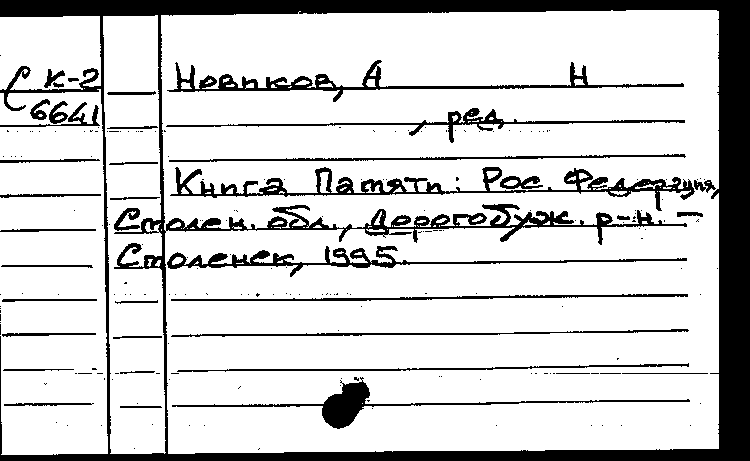 К-2 Новиков, А Н
6641 , ред.
Книга Памяти: Рос. Федерация,
Смолен. обл., Дорогобуж. р-н. –
Смоленск, 1995.